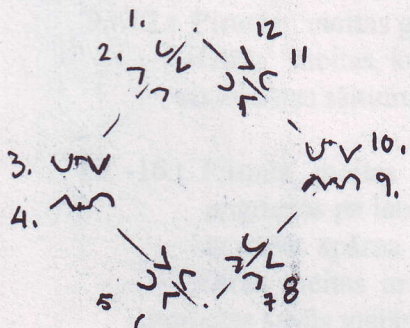 1.
12
2.
11
3.
10.
4.
9.
5
7 8